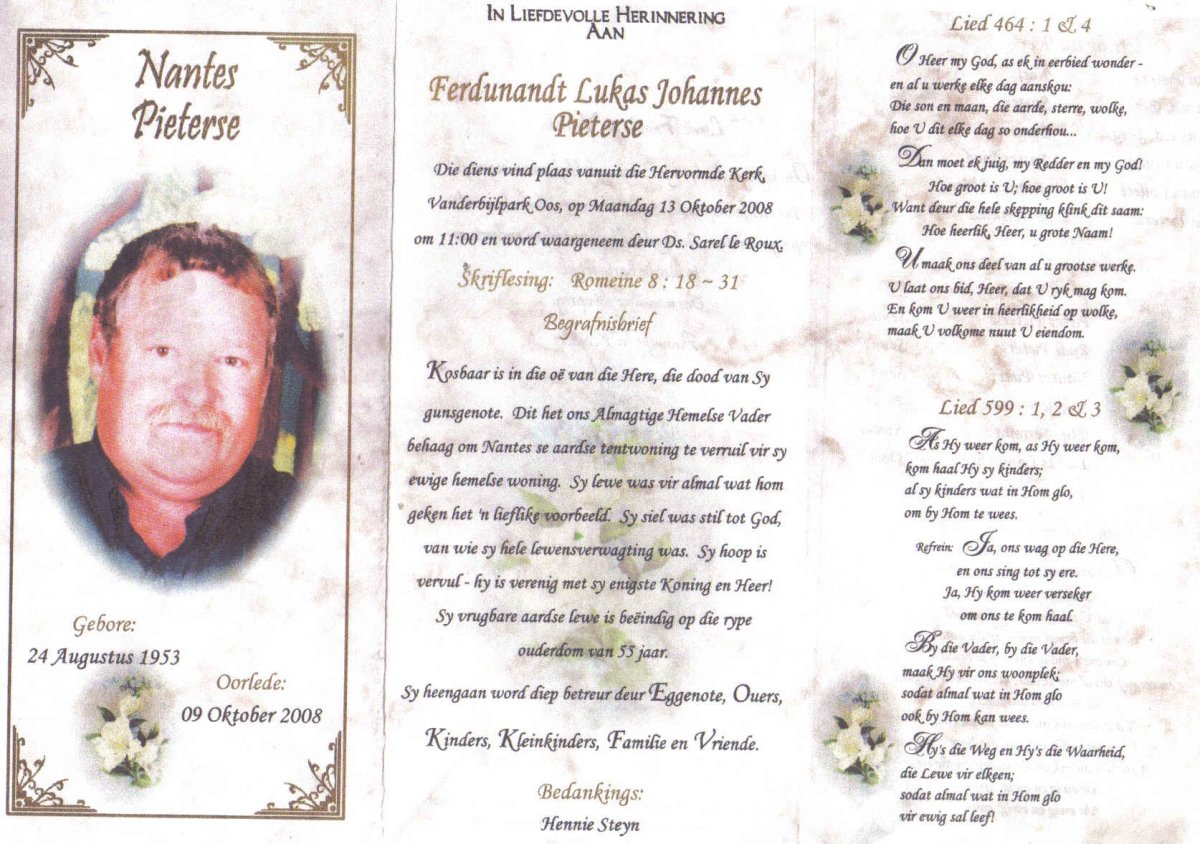 Nantes
Pieterse
Gebore:
24 Augustus 1953
Oorlede:
09 Oktober 2008
In Liefdevolle Herinnering
Aan
Ferdunandt Lukas Johannes
Pieterse
Die diens vind plaas vanuit die Hervormde Kerk,
Vanderbijlpark Oos, op Maandag 13 Oktober 2008
om 11:00 en word waargeneem deur Ds. Sarel le Roux.
Skriflesing: Romeine 8 : 18 ~ 31
Begrafnisbrief
Kosbaar is in die oë van die Here, die dood van Sy
gunsgenote. Dit het ons Almagtige Hemelse Vader
behaag om Nantes se aardse tentwoning te verruil vir sy
ewige hemelse woning. Sy lewe was vir almal wat hom
geken het 'n lieflike voorbeeld. Sy siel was stil tot God,
van wie sy hele lewensverwagting was. Sy hoop is
vervul - hy is verenig met sy enigste Koning en Heer!
Sy vrugbare aardse lewe is beëindig op die rype
ouderdom van 55 jaar.
Sy heengaan word diep betreur deur Eggenote, Ouers,
Kinders, Kleinkinders, Familie en Vriende.
Bedankings:
Hennie Steyn
Lied 464 : 1 & 4
O Heer my God, as ek in eerbied wonder -
en al u werke elke dag aanskou:
Die son en maan, die aarde, sterre, wolke,
hoe U dit elke dag so onderhou...
Dan moet ek juig, my Redder en my God!
Hoe groot is U; hoe groot is U!
Want deur die hele skepping klink dit saam:
Hoe heerlik, Heer, u grote Naam!
U maak ons deel van al u grootse werke.
U laat ons bid, Heer, dat U ryk mag kom.
En kom U weer in heerlikheid op wolke,
maak U volkome nuut U eiendom.
Lied 599 : 1, 2 & 3
As Hy weer kom, as Hy weer kom,
kom haal Hy sy kinders;
al sy kinders wat in Hom glo,
om by Hom te wees.
Refrein: Ja, ons wag op die Here,
en ons sing tot sy ere.
Ja, Hy kom weer verseker
om ons te kom haal.
By die Vader, by die Vader,
maak Hy vir ons woonplek;
sodat almal wat in Hom glo
ook by Hom kan wees.
Hy's die Weg en Hy's die Waarheid,
die Lewe vir elkeen;
sodat almal wat in Hom glo
vir ewig sal leef!